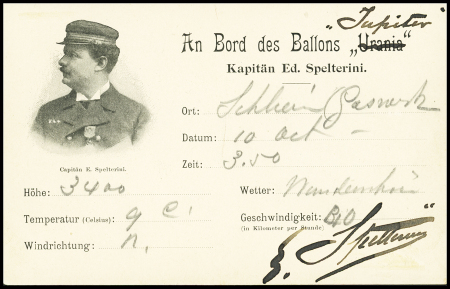 „Jupiter"
An Bord des Ballons „Urania"
Kapitän Ed. Spelterini.
Ort: Schlieren Gaswerk
Datum: 10 Oct –
Zeit: 3.50
Capitän E. Spelterini.
Höhe: 3400
Wetter:
Temperatur (Celsius): 9 C.
Geschwindigkeit: 30
(in Kilometer per Stunde)
Windrichtung: N.
Spelterini